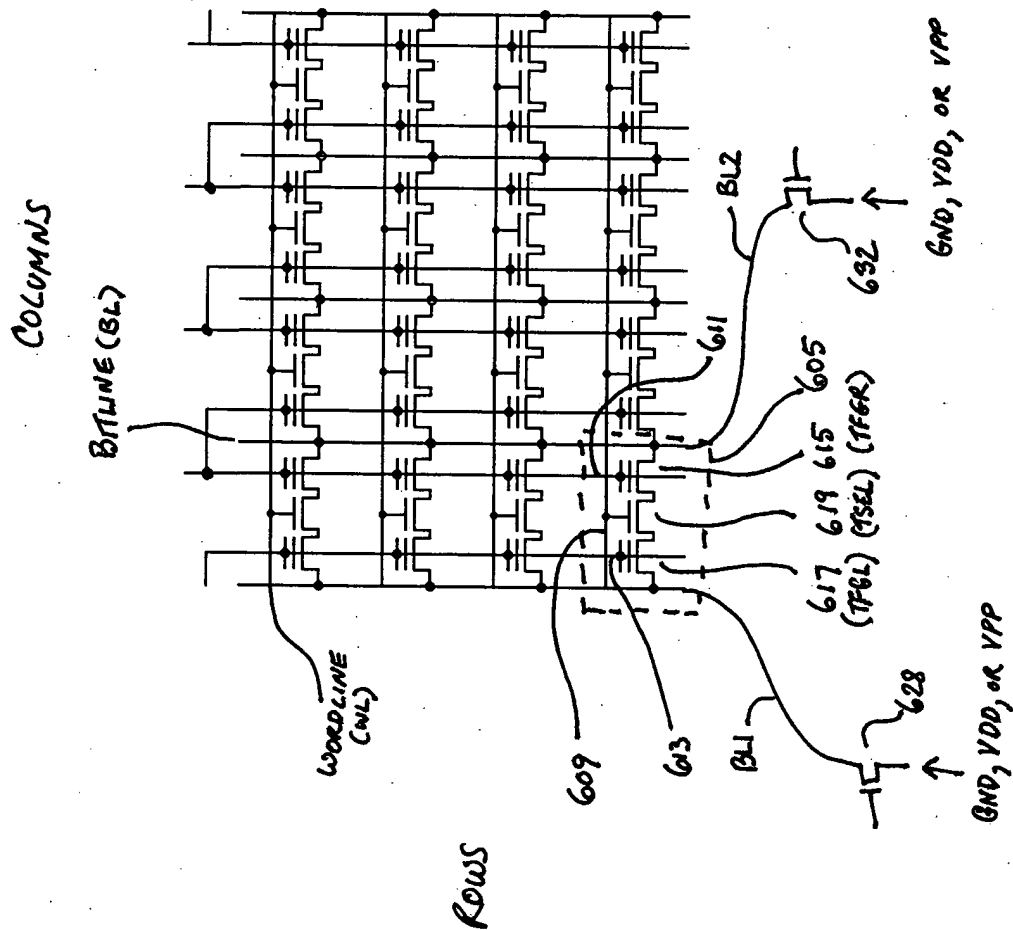 COLUMNS
BITLINE (BL)
WORDLINE
(WL)
ROWS
609
613
BL1
628
GND, VDD, OR VPP
617
(TFGL)
619
(TSEL)
615
(TFGR)
605
611
BL2
632
GND, VDD, OR VPP